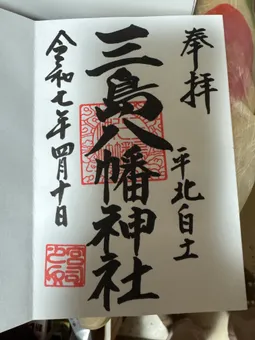 奉拝
平北白土
三島八幡神社
令和七年四月十日